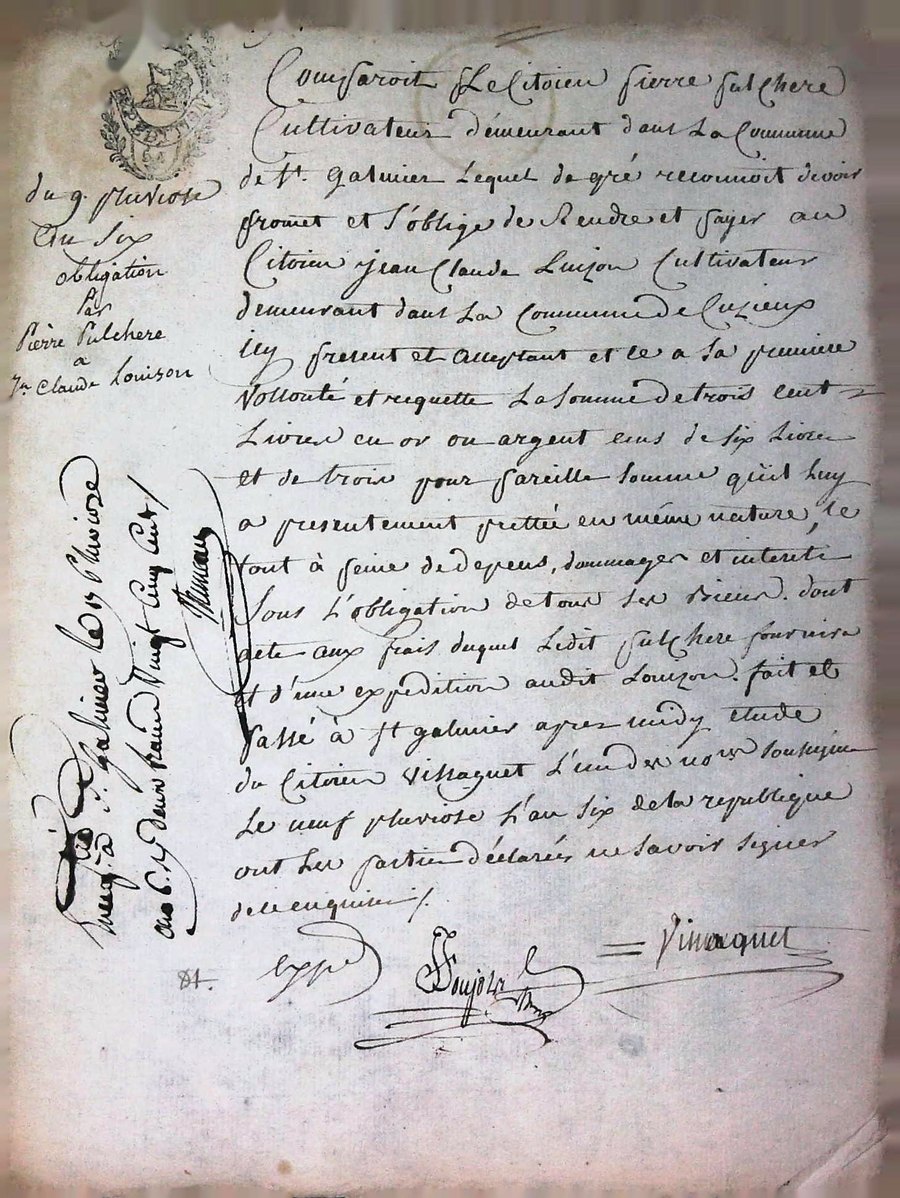 du 9. pluviose
an six
obligation
Par
Pierre Pulchere
a
Jn Claude Louison
Comparoit Le Citoien pierre pulChere
Cultivateur démeurant dans La Commune
de St. galmier Lequel de gré reconnoit devoir
promet et s'oblige de Rendre et payer au
Citoien jean Claude Luizon Cultivateur
demeurant dans La Commune de Cuzieux
icy present et acceptant et ce a sa premiere
Vollonté et requette La somme de trois cent
Livres en or ou argent ecus de six Livres
et de trois pour pareille somme qu'il Luy
a presentement prettée en même nature, le
tout à peine de depens, dommages et interets
sous L'obligation de tous ses Biens. dont
acte aux frais duquel Ledit pulChere fournira
et d'une expedition audit Louizon. fait et
passé à st galmier apres midy etude
du Citoien Vissaguet L'un des nores soussignés
Le neuf pluviose L'an six de la republique
ont Les parties déclarés ne savoir signer
de ce enquises /.
expé
Vissaguet
à St. galmier le 17 Pluviose
an 6. deux francs Vingt Cinq Cent /